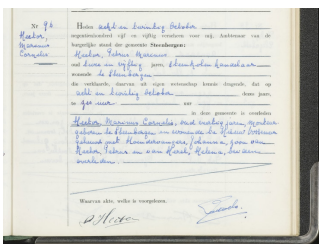 Nr 96
Hector,
Marinus
Cornelis
Heden acht en twintig October
negentienhonderd vijf en vijftig verscheen voor mij, Ambtenaar van de
burgerlijke stand der gemeente Steenbergen:
Hector, Petrus Marinus
oud twee en vijftig jaren,
wonende te Steenbergen
die verklaarde, daarvan uit eigen wetenschap kennis dragende, dat op
acht en twintig October dezes jaars,
te zes uur
in deze gemeente is overleden
Hector Marinus Cornelis, oud jaren,
geboren te Steenbergen en wonende te
gehuwd met Johanna, zoon van
Hector, Petrus en van Helena, beiden
overleden.
Waarvan akte, welke is voorgelezen.
P. Hector